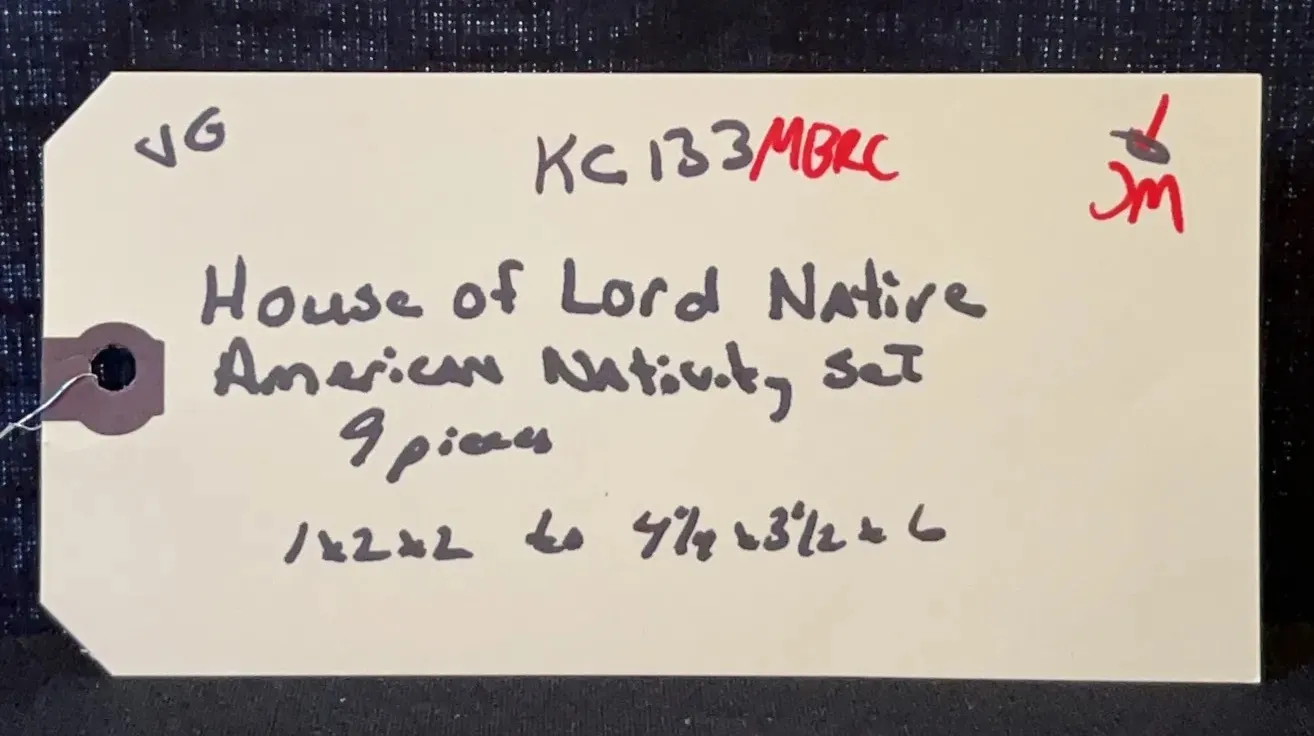 VG KC133/MBRC
JM
House of Lord Native
American Nativity set
9 pieces
1x2x2 to 4 1/4 x 3 1/2 x 6